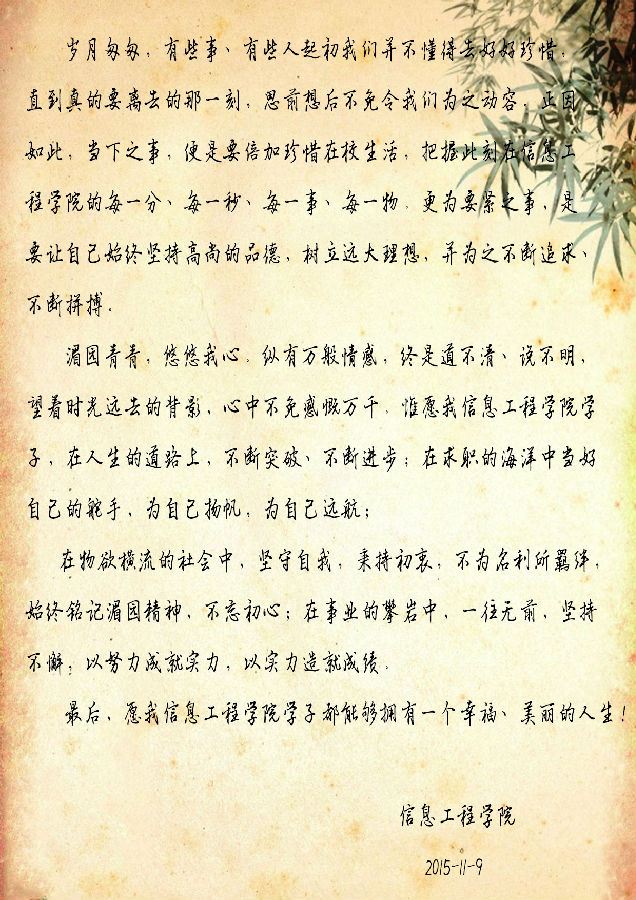 岁月匆匆，有些事、有些人起初我们并不懂得去好好珍惜，
直到真的要离去的那一刻，思前想后不免令我们为之动容，正因
如此，当下之事，便是要倍加珍惜在校生活，把握此刻在信息工
程学院的每一分、每一秒、每一事、每一物。更为要紧之事，是
要让自己始终坚持高尚的品德，树立远大理想，并为之不断追求、
不断拼搏。
湄园青青，悠悠我心。纵有万般情感，终是道不清、说不明，
望着时光远去的背影，心中不免感慨万千，惟愿我信息工程学院学
子，在人生的道路上，不断突破、不断进步；在求职的海洋中当好
自己的舵手，为自己扬帆，为自己远航；
在物欲横流的社会中，坚守自我，秉持初衷，不为名利所羁绊，
始终铭记湄园精神，不忘初心；在事业的攀岩中，一往无前，坚持
不懈，以努力成就实力，以实力造就成绩。
最后，愿我信息工程学院学子都能够拥有一个幸福、美丽的人生！
信息工程学院
2015-11-9